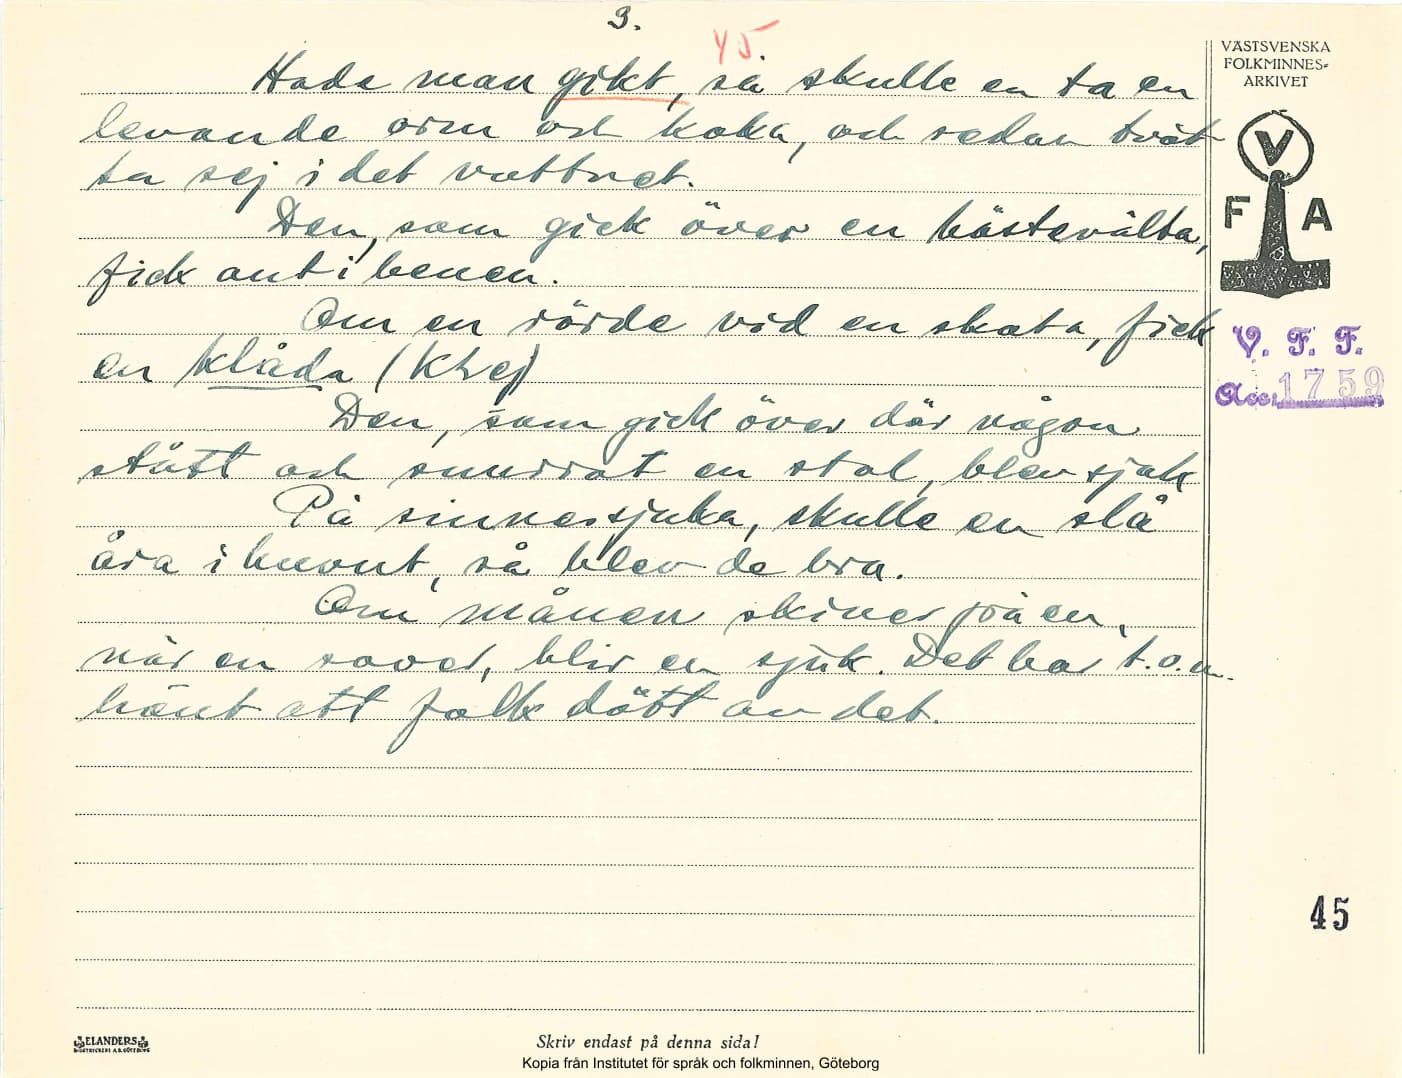 3.
45.
Hade man gikt, så skulle en ta en
levande orm och koka, och sedan tvät-
ta sej i det vattnet.
Den, som gick över en hästevälta,
fick ont i benen.
Om en rörde vid en skata, fick
en klåda (klej)
Den, som gick över där någon
stått och snurrat en stol, blev sjuk
På sinnessjuka, skulle en slå
åra i huvut, så blev de bra.
Om månen skiner på en,
när en sover, blir en sjuk. Det har t.o.m.
hänt att folk dött av det.
VÄSTSVENSKA
FOLKMINNES-
ARKIVET
V
F A
V. F. F.
Acc. 1759
45
ELANDERS
BOKTRYCKERI A.B. GÖTEBORG
Skriv endast på denna sida!
Kopia från Institutet för språk och folkminnen, Göteborg